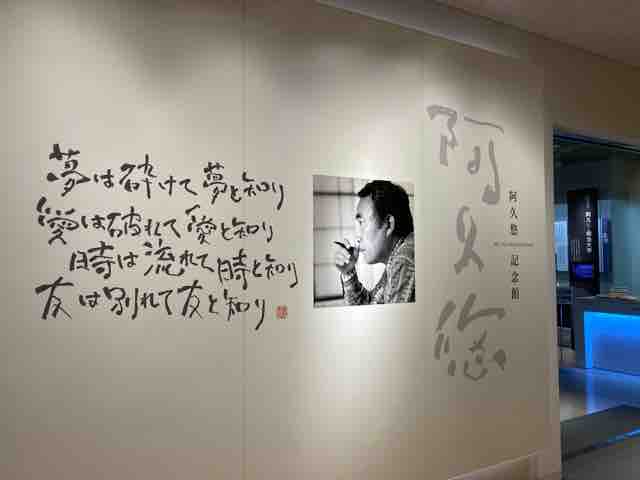 夢は砕けて夢と知り
愛は破れて愛と知り
時は流れて時と知り
友は別れて友と知り
阿久悠
阿久悠記念館